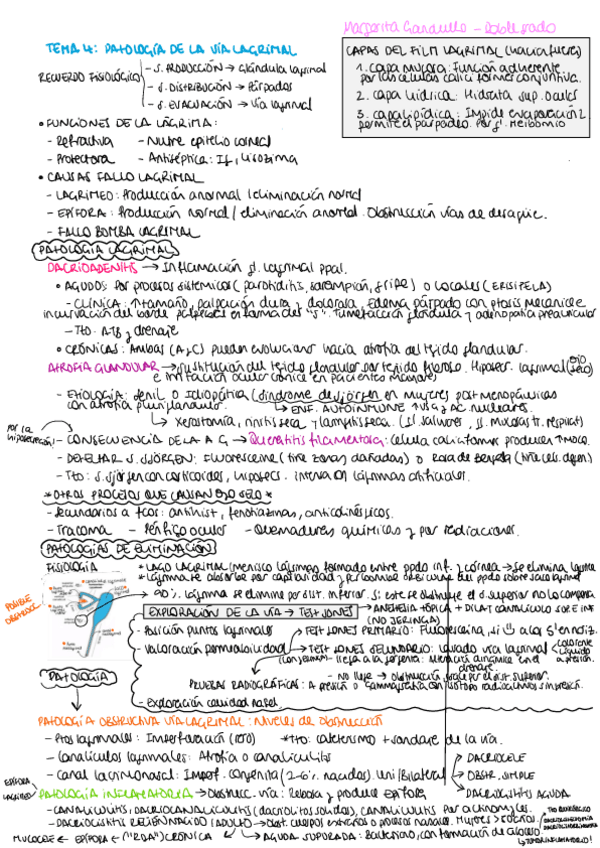 Margarita Gandullo - Doble grado
TEMA 4: PATOLOGÍA DE LA VÍA LAGRIMAL
RECUERDO FISIOLÓGICO
- S. PRODUCCIÓN → Glándula lagrimal
- S. DISTRIBUCIÓN → Párpados
- S. EVACUACIÓN → Vía lagrimal
CAPAS DEL FILM LAGRIMAL (hacia fuera)
1. capa mucosa: Función adherente
por las células caliciformes conjuntiva.
2. capa hídrica: Hidrata sup. ocular
3. capa lipídica: Impide evaporación y
permite el parpadeo. Por gl. Meibomio
• FUNCIONES DE LA LÁGRIMA:
- Refractiva - Nutre epitelio corneal
- Protectora - Antiséptica: If, lisozima
• CAUSAS FALLO LAGRIMAL
- LAGRIMEO: Producción anormal / eliminación normal
- EPÍFORA: Producción normal / eliminación anormal. Obstrucción vías de desagüe.
- FALLO BOMBA LAGRIMAL
PATOLOGÍA LAGRIMAL
DACRIOADENITIS → Inflamación gl. lagrimal ppal.
• AGUDOS: Por procesos sistémicos (parotiditis, sarampión, gripe) o LOCALES (ERISIPELA)
- CLÍNICA: ↑tamaño, palpación dura y dolorosa, Edema párpado con ptosis mecánica e
incurvación del borde palpebral en forma de "S". Tumefacción glándula y adenopatía preauricular
- Tto: ATB y drenaje
• CRÓNICAS: Ambas (A y C) pueden evolucionar hacia atrofia del tejido glandular.
ATROFIA GLANDULAR → sustitución del tejido glandular por tejido fibroso. Hiposecr. lagrimal (ojo seco)
e irritación ocular crónica en pacientes mayores
- ETIOLOGÍA: Senil o Idiopática (síndrome de sjögren) en mujeres postmenopáusicas
con atrofia pluriglandular.
→ ENF. AUTOINMUNE ↑VSG y AC nucleares.
→ xerostomía, rinitis seca y laringitis seca. (gl. salivares, gl. mucosas tr. respirat)
por la hiposecreción
- CONSECUENCIA DE LA A G → Queratitis filamentosa: célula caliciformes producen ↑moco.
- DETECTAR S. SJÖRGEN: FLUORESCEÍNA (tiñe zonas dañadas) o Rosa de Bengala (tiñe cels. degen.)
- Tto: S. sjörgen con corticoides, hiposecr. intensa con lágrimas artificiales.
*OTROS PROCESOS QUE CAUSAN OJO SECO*
- Secundarios a fcos: antihist, fenotiazinas, anticolinérgicos.
- Tracoma - Pénfigo ocular - Quemaduras químicas y por radiaciones.
PATOLOGÍAS DE ELIMINACIÓN
FISIOLOGÍA
* LAGO LAGRIMAL (menisco lágrimas formado entre ppdo inf. y córnea → Se elimina lágrima
* Lágrima se absorbe por capilaridad y
POSIBLE OBSTRUCC.
→ 90% lágrima se elimina por dist. inferior. Si este se obstruye el d. superior no lo compensa
EXPLORACIÓN DE LA VÍA → TEST JONES
→ ANESTESIA TÓPICA + DILAT CANALÍCULO SUP E INF
(NO JERINGA)
- Posición puntos lagrimales
- Valoración permeabilidad
→ TEST JONES PRIMARIO: Fluoresceína, si
→ TEST JONES SECUNDARIO: lavado vía lagrimal
(con jeringa)
colorante líquido a presión.
- No llega → obstrucción
PRUEBAS RADIOGRÁFICAS: A presión o gammagrafía con isótopo radiactivos sin presión.
- Exploración cavidad nasal.
PATOLOGÍA
PATOLOGÍA OBSTRUCTIVA VÍA LAGRIMAL: Niveles de obstrucción
- Ptos lagrimales: Imperforación *Tto: cateterismo + sondaje de la vía.
- Canalículos lagrimales: Atrofia o canaliculitis
- Canal lacrimonasal: Imperf. congénita (2-6% nacidos). uni/Bilateral
→ DACRIOCELE
→ OBSTR. SIMPLE
→ DACRIOCISTITIS AGUDA
EPÍFORA
LAGRIMEO
PATOLOGÍA INFLAMATORIA → Obstrucc. vía: Rebosa y produce Epífora
- CANALICULITIS, DACRIOCANALICULITIS (dacriolitos solidos), CANALICULITIS por actinomyces.
- DACRIOCISTITIS RECIÉN NACIDO / ADULTO → Obst. cuerpos extraños o procesos nasales. Mujeres >
MUCOCELE ← EPÍFORA ← ("RIJA") CRÓNICA → AGUDA SUPURADA: Bacteriano, con formación de absceso